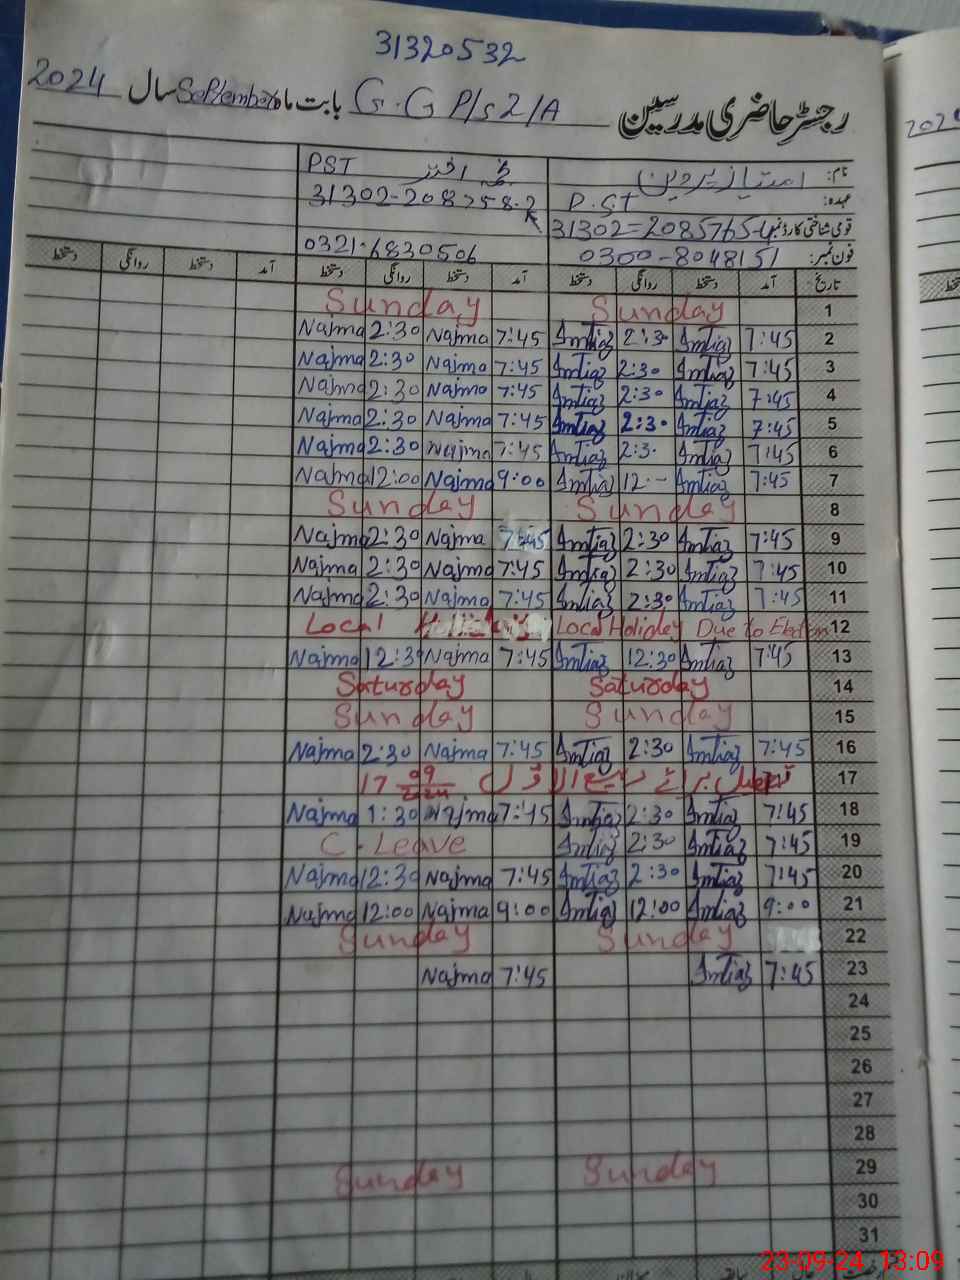 31320532
رجسٹر حاضری مدرسین G.G P/s 2/A بابت ماہ September سال 2024
نام: امتیاز پروین نجمہ اختر PST
عہدہ: P.ST 31302-208758-2
قومی شناختی کارڈ نمبر 31302=2085765-4
فون نمبر: 0300-8048151 0321-6830506
تاریخ آمد دستخط روانگی دستخط آمد دستخط روانگی دستخط آمد دستخط روانگی دستخط
Sunday Sunday 1
Najma 2:30 Najma 7:45 Amtiaz 2:30 Amtiaz 7:45 2
Najma 2:30 Najma 7:45 Amtiaz 2:30 Amtiaz 7:45 3
Najma 2:30 Najma 7:45 Amtiaz 2:30 Amtiaz 7:45 4
Najma 2:30 Najma 7:45 Amtiaz 2:30 Amtiaz 7:45 5
Najma 2:30 Najma 7:45 Amtiaz 2:30 Amtiaz 7:45 6
Najma 12:00 Najma 9:00 Amtiaz 12·- Amtiaz 7:45 7
Sunday Sunday 8
Najma 2:30 Najma 7:45 Amtiaz 2:30 Amtiaz 7:45 9
Najma 2:30 Najma 7:45 Amtiaz 2:30 Amtiaz 7:45 10
Najma 2:30 Najma 7:45 Amtiaz 2:30 Amtiaz 7:45 11
Local Local Holiday Due to 12
Najma 12:30 Najma 7:45 Amtiaz 12:30 Amtiaz 7:45 13
Saturday Saturday 14
Sunday Sunday 15
Najma 2:30 Najma 7:45 Amtiaz 2:30 Amtiaz 7:45 16
تعطیل برائے ربیع الاول 17 09 2024 17
Najma 1:30 Najma 7:45 Amtiaz 2:30 Amtiaz 7:45 18
C-Leave Amtiaz 2:30 Amtiaz 7:45 19
Najma 12:30 Najma 7:45 Amtiaz 2:30 Amtiaz 7:45 20
Najma 12:00 Najma 9:00 Amtiaz 12:00 Amtiaz 9:00 21
Sunday Sunday 22
Najma 7:45 Amtiaz 7:45 23
24
25
26
27
28
Sunday Sunday 29
30
31
23-09-24 13:09